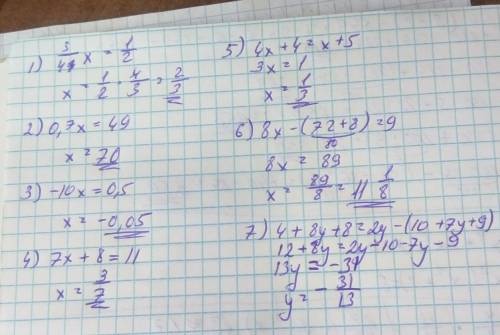 1) 3/4 x = 1/2
x = 1/2 · 4/3 = 2/3
2) 0,7x = 49
x = 70
3) -10x = 0,5
x = -0,05
4) 7x + 8 = 11
x = 3/7
5) 4x + 4 = x + 5
3x = 1
x = 1/3
6) 8x - (72 + 8) = 9
80
8x = 89
x = 89/8 = 11 1/8
7) 4 + 8y + 8 = 2y - (10 + 7y + 9)
12 + 8y = 2y - 10 - 7y - 9
13y = -31
y = - 31/13